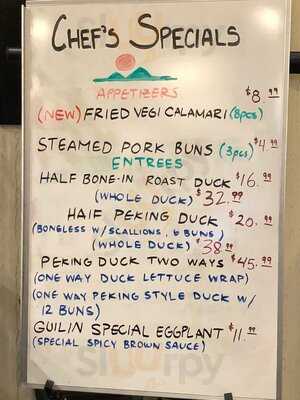 CHEF'S SPECIALS
APPETIZERS
$8.99
(NEW) FRIED VEGI CALAMARI (8pcs)
STEAMED PORK BUNS (3pcs) $4.99
ENTREES
HALF BONE-IN ROAST DUCK $16.99
(WHOLE DUCK) $32.99
HAIF PEKING DUCK $20.99
(BONELESS W/SCALLIONS, 6 BUNS)
(WHOLE DUCK) $38.99
PEKING DUCK TWO WAYS $45.99
(ONE WAY DUCK LETTUCE WRAP)
(ONE WAY PEKING STYLE DUCK W/
12 BUNS)
GUILIN SPECIAL EGGPLANT $11.99
(SPECIAL SPICY BROWN SAUCE)
sirturpy